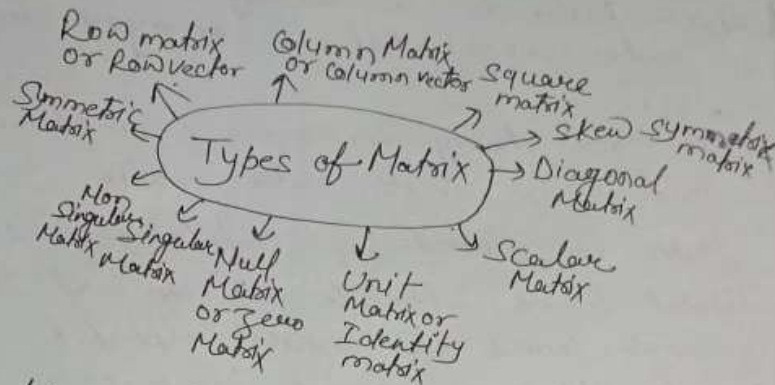 Row matrix
or Row vector
Column Matrix
or column vector
Square
matrix
Skew symmetrix
matrix
Diagonal
Matrix
Scalar
Matrix
Unit
Matrix or
Identity
matrix
Null
Matrix
or Zero
Matrix
Singular
Matrix
Non
Singular
Matrix
Symmetric
Matrix
Types of Matrix